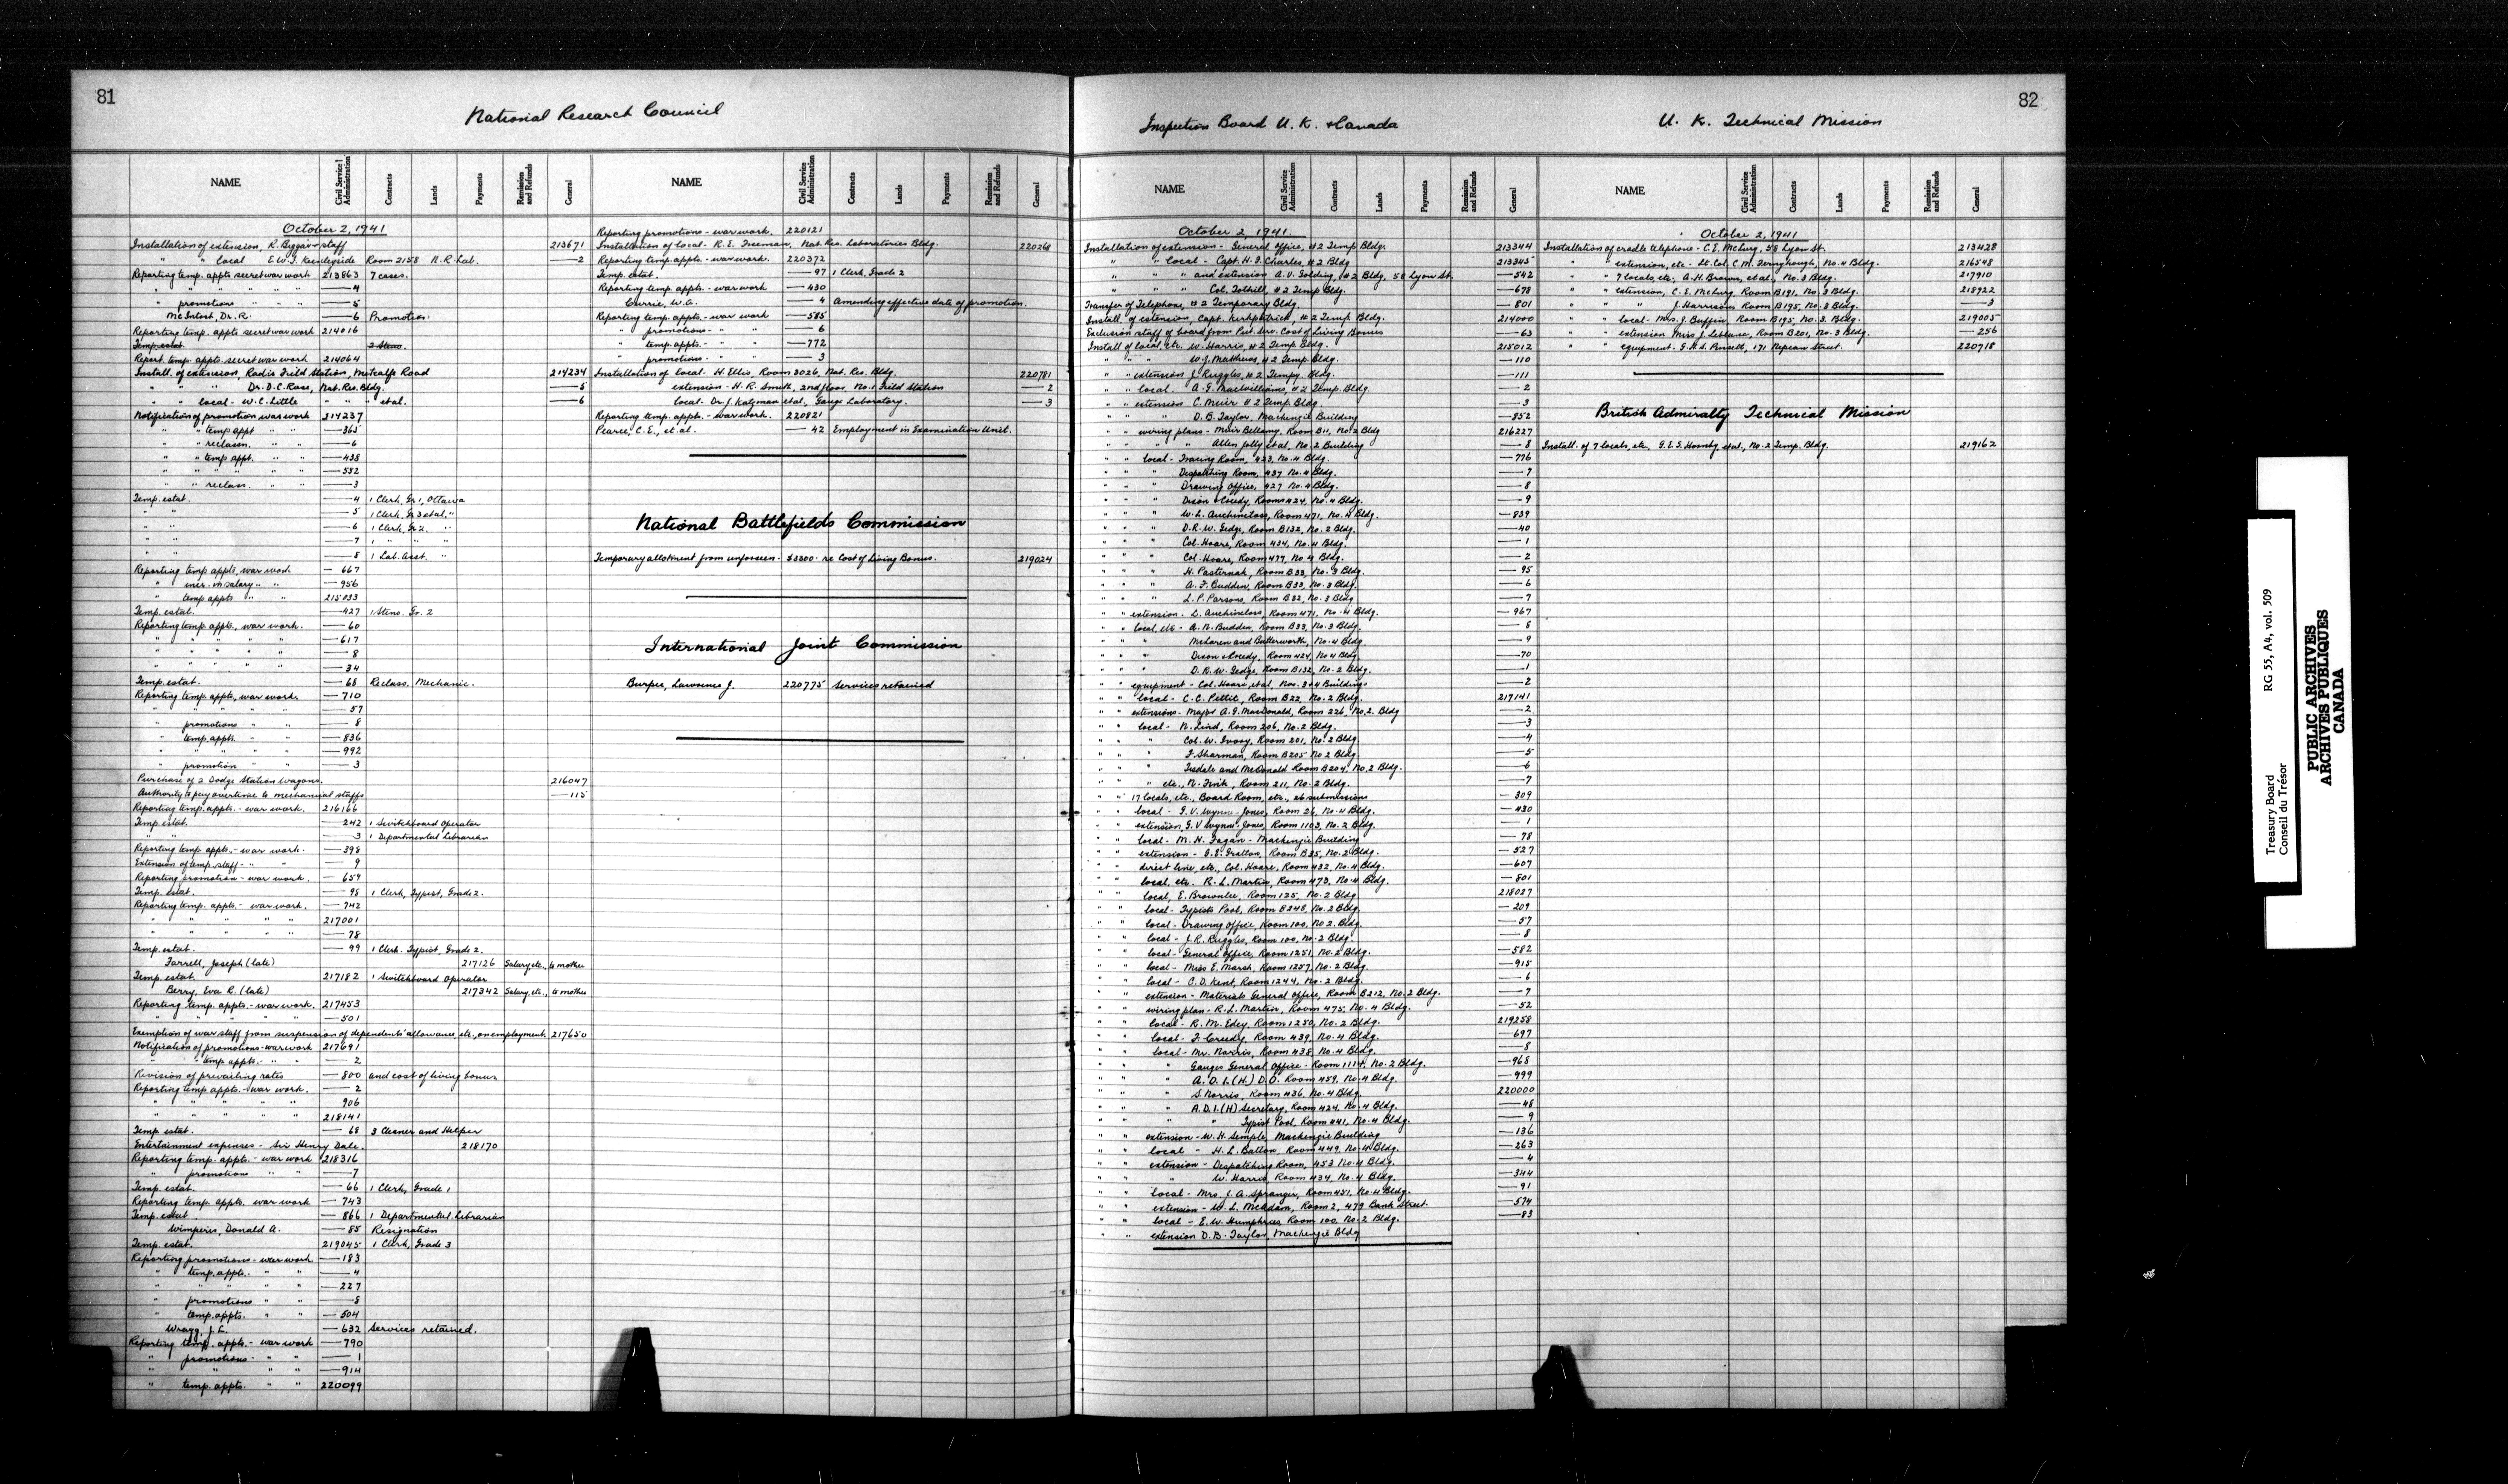 81
National Research Council
NAME
Civil Service Administration
Contracts
Lands
Payments
Remission and Refunds
General
October 2, 1941
Installation of extension, R. Beggs & staff 213671
" " local E.W.J. Keenleyside Room 2158 N.R. Lab. —2
Reporting temp. appts secret war work 213863 7 cases.
" " " " " —4
" promotions " " " —5
McIntosh, Dr. R. —6 Promotion.
Reporting temp. appts secret war work 214016
Temp. estat. 2 Steno.
Report. temp. appts. secret war work 214064
Install. of extension, Radio Field Station, Metcalfe Road 214234
" " " Dr. D.C. Rose, Nat. Res. Bldg. —5
" " local - W.C. Little " " " et al. —6
Notification of promotion war work 214237
" " temp appt " " —365
" " reclassn. " " —6
" " temp appt. " " —438
" " " " " " —532
" " reclass. " " —3
Temp. estat. —4 1 Clerk, Gr. 1, Ottawa
" " —5 1 Clerk, Gr 3 et al. "
" " —6 1 Clerk, Gr 2. "
" " —7 1 " " "
" " —8 1 Lab. Asst. "
Reporting temp appts, war work —667
" incr. in salary " " —956
" temp appts " " 215033
Temp. estat. —427 1 Steno. Gr. 2
Reporting temp. appts, war work. —60
" " " " " —617
" " " " " —8
" " " " " —34
Temp. estat. —68 Reclass. Mechanic.
Reporting temp. appts, war work. —710
" " " " " —57
" promotions " " —8
" temp. appts. " " —836
" " " " " —992
" promotion " " —3
Purchase of 2 Dodge Station Wagons. 216047
Authority to pay overtime to mechanical staffs —115
Reporting temp. appts. - war work. 216166
Temp. estat. —242 1 Switchboard Operator
" " —3 1 Departmental Librarian
Reporting temp appts. - war work. —398
Extension of temp. staff - " " —9
Reporting promotion - war work. —659
Temp. estat. —98 1 Clerk, Typist, Grade 2.
Reporting temp. appts. - war work. —742
" " " " " 217001
" " " " " —78
Temp. estat. —99 1 Clerk. Typist, Grade 2.
Farrell, Joseph (late) 217126 Salary etc., to mother
Temp. estat. 217182 1 Switchboard Operator
Berry, Eva R. (late) 217342 Salary, etc., to mother
Reporting temp. appts. - war work. 217453
" " " " " —501
Exemption of war staff from suspension of dependents' allowance, etc., on employment. 217650
Notification of promotions - war work 217691
" " temp appts. - " " —2
Revision of prevailing rates —800 and cost of living bonus
Reporting temp appts. - war work. —2
" " " " " 906
" " " " " 218141
Temp estat. —68 3 Cleaner and Helper
Entertainment expenses - Sir Henry Dale. 218170
Reporting temp. appts. - war work 218316
" promotions " " —7
Temp. estat. —66 1 Clerk, Grade 1
Reporting temp. appts. war work —743
Temp. estat —866 1 Departmental Librarian
Wimperis, Donald A. —85 Resignation
Temp. estat. 219045 1 Clerk, Grade 3
Reporting promotions - war work —183
" temp. appts. - " " —4
" " " " " —227
" promotions " " —8
" temp. appts. " " —504
Wragg, J.L. —632 Services retained.
Reporting temp. appts. - war work —790
" promotions - " " —1
" " " " —914
" temp. appts. " " 220099
NAME
Civil Service Administration
Contracts
Lands
Payments
Remission and Refunds
General
Reporting promotions - war work. 220121
Installation of local - R.E. Freeman, Nat. Res. Laboratories Bldg. 220268
Reporting temp. appts. - war work. 220372
Temp. estat. —97 1 Clerk, Grade 2
Reporting temp. appts. - war work —430
Currie, W.A. —4 Amending effective date of promotion.
Reporting temp. appts. - war work —585
" promotions - " " —6
" temp. appts. - " " —772
" promotions - " " —3
Installation of local - H. Ellis, Room 3026, Nat. Res. Bldg. 220781
extension - H.R. Smith, 2nd floor, No. 1 Field Station —2
local. Dr. J. Katzman et al., Gauge Laboratory. —3
Reporting temp. appts. - war work. 220821
Pearce, C.E., et al. —42 Employment in Examination Unit.
National Battlefields Commission
Temporary allotment from unforseen - $3300 - re Cost of Living Bonus. 219024
International Joint Commission
Burpee, Lawrence J. 220775 Services retained
82
Inspection Board U.K. & Canada
NAME
Civil Service Administration
Contracts
Lands
Payments
Remission and Refunds
General
October 2, 1941.
Installation of extension - General Office, #2 Temp. Bldg. 213344
" " local - Capt. H.F. Charles, #2 Bldg 213345
" " " and extension A.V. Golding, #2 Bldg, 58 Lyon St. —542
" " " Col. Tothill, #2 Temp Bldg. —678
Transfer of Telephone, #2 Temporary Bldg. —801
Install. of extension, Capt. Kirkpatrick, #2 Temp. Bldg. 214000
Exclusion staff of board from Pub. Serv. Cost of Living Bonus —63
Install of local, etc. W. Harris, #2 Temp. Bldg. 215012
" " " W.J. Matthews, #2 Temp. Bldg. —110
" " extension J. Ruggles, #2 Tempy. Bldg. —111
" " local - A.G. MacWilliams, #2 Temp. Bldg. —2
" " extension C. Muir #2 Temp. Bldg. —3
" " " D.B. Taylor, Mackenzie Building —852
" " wiring plans - Muir Bellamy, Room B11, No. 2 Bldg 216227
" " " " Allen Jolly et al, No. 2 Building —8
" " local - Tracing Room, 423, No. 4 Bldg. —776
" " " Dispatching Room, 437 No. 4 Bldg. —7
" " " Drawing Office, 427 No. 4 Bldg. —8
" " " Dixon & Creedy, Rooms 424, No. 4 Bldg. —9
" " " W.L. Auchincloss, Room 471, No. 4 Bldg. —839
" " " D.R.W. Gedge, Room B132, No. 2 Bldg. —40
" " " Col. Hoare, Room 434, No. 4 Bldg. —1
" " " Col. Hoare, Room 477, No. 4 Bldg. —2
" " " H. Pasternak, Room B33, No. 3 Bldg. —95
" " " A.F. Budden, Room B33, No. 3 Bldg. —6
" " " L.P. Parsons, Room B32, No. 3 Bldg —7
" " extension - L. Auchincloss, Room 471, No. 4 Bldg. —967
" " local, etc - A.N. Budden, Room B33, No. 3 Bldg. —8
" " " McLaren and Butterworth, No. 4 Bldg. —9
" " " Dixon & Creedy, Room 424, No 4 Bldg. —70
" " " D.R.W. Gedge, Room B132, No. 2 Bldg. —1
" " equipment - Col. Hoare, et al, Nos. 3 & 4 Buildings —2
" " local - C.C. Pettit, Room B22, No. 2 Bldg. 217141
" " extensions - Major A.G. MacDonald, Room 226, No. 2. Bldg —2
" " local - N. Lind, Room 206, No. 2 Bldg. —3
" " " Col. W. Ivory, Room 201, No. 2 Bldg. —4
" " " F. Sharman, Room B205 No 2 Bldg. —5
" " " Tisdale and McDonald Room B204, No. 2 Bldg. —6
" " " etc., N. Fink, Room 211, No. 2 Bldg. —7
" " 17 locals, etc., Board Room, etc., 26 submissions —309
" " local - G.V. Wynne-Jones, Room 26, No. 4 Bldg. —430
" " extension, G.V. Wynne-Jones, Room 1103, No. 2 Bldg. —1
" " local - M.H. Fagan - Mackenzie Building —78
" " extension - J.E. Gratton, Room B35, No. 2 Bldg. —527
" " direct line, etc, Col. Hoare, Room 432, No. 4 Bldg. —607
" " local, etc. R.L. Martin, Room 473, No. 4 Bldg. —801
" " local, E. Brownlee, Room 125, No. 2 Bldg 218027
" " local - Typists Pool, Room B248, No. 2 Bldg. —209
" " local - Drawing Office, Room 100, No 2. Bldg. —57
" " local - J.R. Ruggles, Room 100, No. 2 Bldg. —8
" " local - General Office, Room 1251, No. 2 Bldg. —582
" " local - Miss E. Marsh, Room 1257, No. 2 Bldg. —915
" " local - C.D. Kent, Room 1244, No. 2 Bldg. —6
" " extension - Materials General Office, Room B212, No. 2 Bldg. —7
" " wiring plan - R.L. Martin, Room 475, No. 4 Bldg. —52
" " local - R.M. Edey, Room 1250, No. 2 Bldg. 219258
" " local - F. Creedy, Room 439, No. 4 Bldg. —697
" " local - Mr. Norris, Room 438, No. 4 Bldg. —8
" " " Gauges General Office - Room 1114, No. 2 Bldg. —968
" " " A.D.I.(H.) D.O. Room 459, No. 4 Bldg. —999
" " " S. Norris, Room 436, No. 4 Bldg. 220000
" " " A.D.I.(H) Secretary, Room 424, No. 4 Bldg. —48
" " " Typist Pool, Room 441, No. 4 Bldg. —9
" " extension - W.H. Semple, Mackenzie Building —136
" " local - H.L. Batton, Room 449, No. 4 Bldg. —263
" " extension - Despatching Room, 453 No. 4 Bldg. —4
" " " W. Harris, Room 434, No. 4 Bldg. —344
" " local - Mrs. J.A. Spranger, Room 451, No. 4 Bldg. —91
" " extension - W.L. McAdam, Room 2, 479 Bank Street. —574
" " local - E.W. Humphries, Room 100, No. 2 Bldg. —83
" " extension D.B. Taylor, Mackenzie Bldg
U. K. Technical Mission
NAME
Civil Service Administration
Contracts
Lands
Payments
Remission and Refunds
General
October 2, 1941
Installation of cradle telephone - C.E. McTurg, 58 Lyon St. 213428
" " extension, etc - Lt. Col. C.M. Fernyhough, No. 4 Bldg. 216548
" " 7 locals, etc, A.H. Brown, et al, No. 3 Bldg. 217910
" " extension, C.E. McTurg, Room B191, No. 3 Bldg. 218922
" " " J. Harrison, Room B195, No. 3 Bldg. —3
" " local - Mrs. J. Buffin, Room B195, No. 3. Bldg. 219005
" " extension Miss J. Leblanc, Room B201, No. 3 Bldg. —256
" " equipment - G.H.S. Pinsell, 171 Nepean Street. 220718
British Admiralty Technical Mission
Install. of 7 locals, etc, G.E.S. Hornby, et al, No. 2 Temp. Bldg. 219162
Treasury Board RG 55, A4, vol. 509
Conseil du Trésor
PUBLIC ARCHIVES
ARCHIVES PUBLIQUES
CANADA